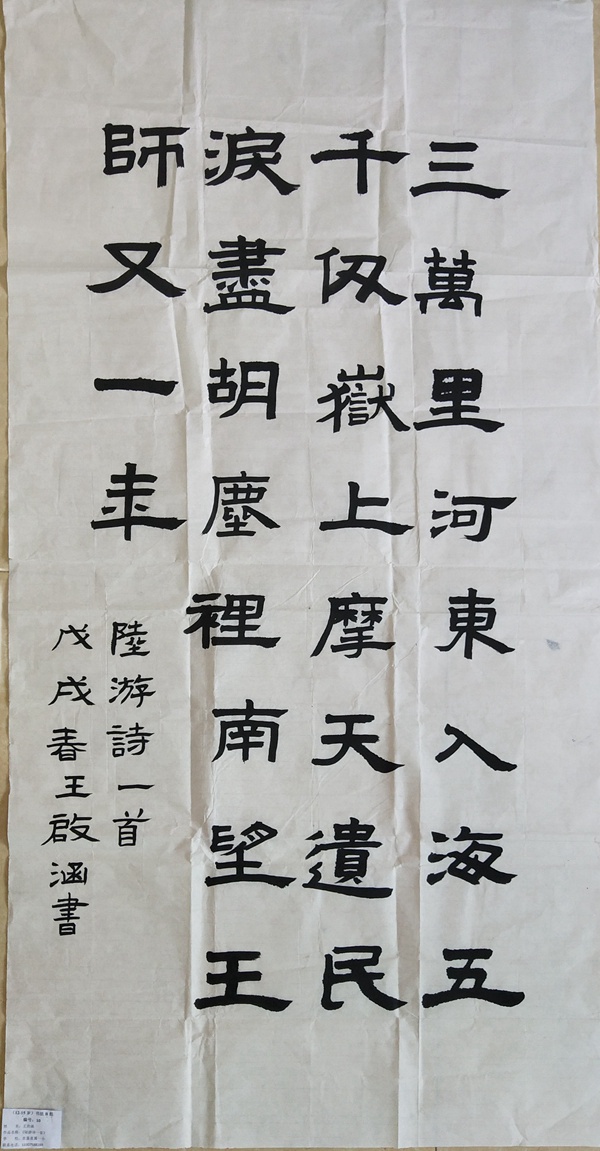 三萬里河東入海五
千仭嶽上摩天遺民
淚盡胡塵裡南望王
師又一年
陸游詩一首
戊戌春王啟涵書